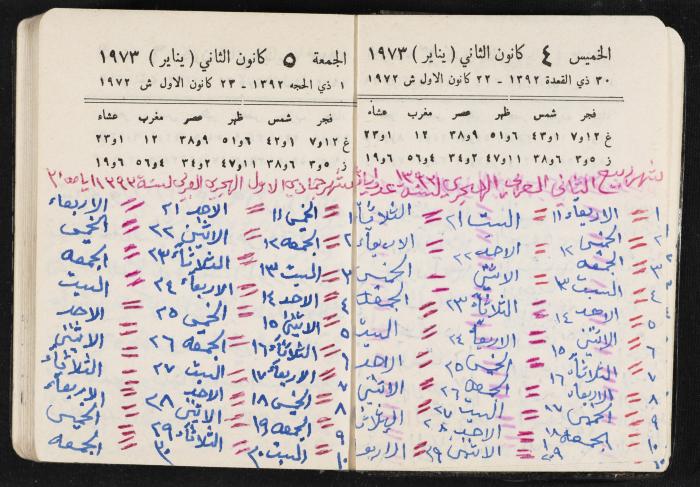 الخميس ٤ كانون الثاني ( يناير ) ١٩٧٣
٣٠ ذي القعدة ١٣٩٢ - ٢٢ كانون الاول ش ١٩٧٢
فجر شمس ظهر عصر مغرب عشاء
غ ١٢و٧ ١و٤٣ ٦و٥١ ٩و٣٨ ١٢ ١و٢٣
ز ٥و٣ ٦و٣٨ ١١و٤٧ ٢و٢٤ ٤و٥٦ ٦و١٩
شهر ربيع الثاني العربي الهجري لسنة ١٣٩٣
١ = الاربعاء ١١ = السبت ٢١ = الثلاثاء
٢ = الخميس ١٢ = الاحد ٢٢ = الاربعاء
٣ = الجمعه = الاثنين = الخميس
٤ = السبت = الثلاثاء ٢٣ = الجمعه
٥ = الاحد ١٤ = الاربعاء ٢٤ = السبت
٦ = الاثنين ١٥ = الخميس ٢٥ = الاحد
٧ = الثلاثاء ١٦ = الجمعه ٢٦ = الاثنين
٨ = الاربعاء = السبت ٢٧ = الثلاثاء
٩ = الخميس ١٧ = الاحد ٢٨ = الاربع
١٠ = الجمعه ١٨ = الاثنين ٢٩
الجمعة ٥ كانون الثاني ( يناير ) ١٩٧٣
١ ذي الحجه ١٣٩٢ - ٢٣ كانون الاول ش ١٩٧٢
فجر شمس ظهر عصر مغرب عشاء
غ ١٢و٧ ١و٤٢ ٦و٥١ ٩و٣٨ ١٢ ١و٢٣
ز ٥و٣ ٦و٣٨ ١١و٤٧ ٢و٢٤ ٤و٥٦ ٦و١٩
شهر جمادي الاول الهجري العربي لسنة ١٣٩٣ ايامه ٣٠
١ = الخميس ١١ = الاحد ٢١ = الاربعاء
٢ = الجمعه ١٢ = الاثنين ٢٢ = الخميس
٣ = السبت ١٣ = الثلاثاء ٢٣ = الجمعه
٤ = الاحد ١٤ = الاربعاء ٢٤ = السبت
٥ = الاثنين ١٥ = الخميس ٢٥ = الاحد
٦ = الثلاثاء ١٦ = الجمعه ٢٦ = الاثنين
٧ = الاربعاء ١٧ = السبت ٢٧ = الثلاثاء
٨ = الخميس ١٨ = الاحد ٢٨ = الاربعاء
٩ = الجمعه ١٩ = الاثنين ٢٩ = الخميس
١٠ = السبت ٢٠ = الثلاثاء ٣٠ = الجمعه